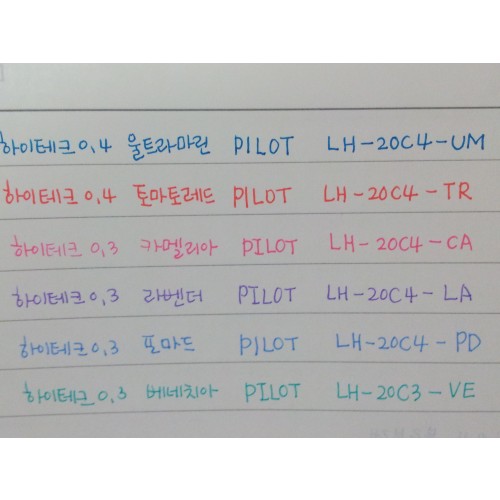 하이테크 0,4 울트라마린 PILOT LH-20C4-UM
하이테크 0,4 토마토레드 PILOT LH-20C4-TR
하이테크 0,3 카멜리아 PILOT LH-20C4-CA
하이테크 0,3 라벤더 PILOT LH-20C4-LA
하이테크 0,3 포마드 PILOT LH-20C4-PD
하이테크 0,3 베네치아 PILOT LH-20C3-VE